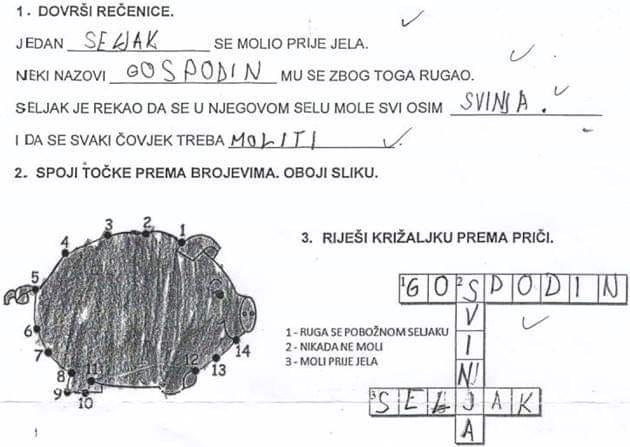 1. DOVRŠI REČENICE.
JEDAN SELJAK SE MOLIO PRIJE JELA.
NEKI NAZOVI GOSPODIN MU SE ZBOG TOGA RUGAO.
SELJAK JE REKAO DA SE U NJEGOVOM SELU MOLE SVI OSIM SVINJA.
I DA SE SVAKI ČOVJEK TREBA MOLITI.
2. SPOJI TOČKE PREMA BROJEVIMA. OBOJI SLIKU.
3 2 1
4
5
6
7
8
9 10
11
12
13
14
3. RIJEŠI KRIŽALJKU PREMA PRIČI.
1 GOSPODIN
2 SVINJA
3 SELJAK
1 - RUGA SE POBOŽNOM SELJAKU
2 - NIKADA NE MOLI
3 - MOLI PRIJE JELA